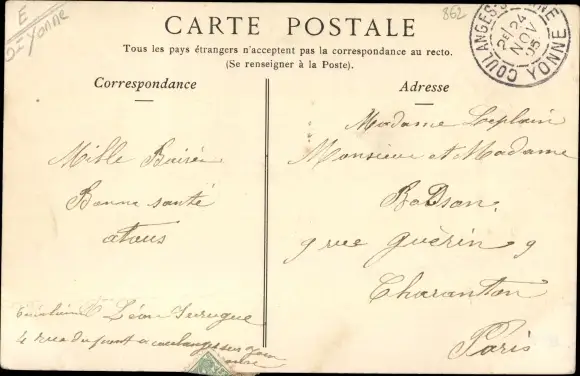 E
Yonne
862
CARTE POSTALE
Tous les pays étrangers n'acceptent pas la correspondance au recto.
(Se renseigner à la Poste).
COULANGES-S-YONNE
24
NOV
05
YONNE
Correspondance
Mille Baisés
Bonne santé
atous
Léon Surugue
4 rue du pont a coulanges sur yonne
Adresse
Madame Leplain
Monsieur et Madame
Badson.
9 rue Guérin 9
Charanton
Paris